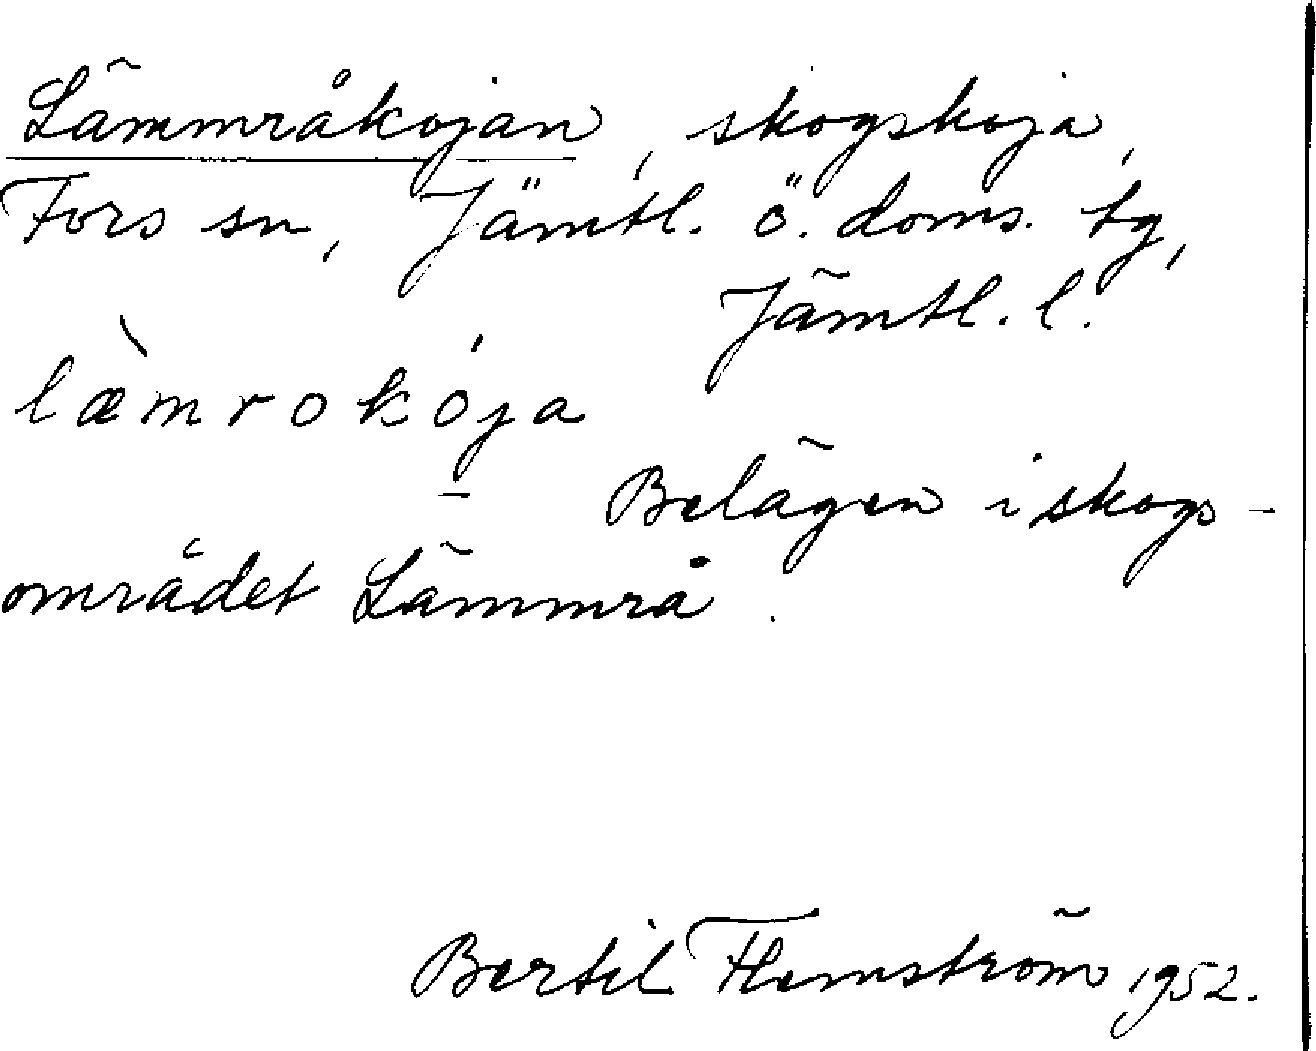 Lämmråkojan, skogskoja,
Fors sn, Jämtl. ö. doms. tg,
Jämtl. l.
læ̀mrokója
– Belägen i skogs-
området Lämmrå.
Bertil Flemström 1952.